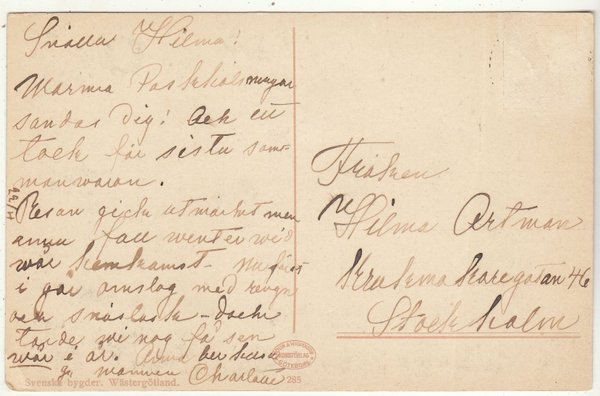 Snälla Hilma!
Warma Påskhälsningar
sändas dig! Ock ett
tack för sista sam-
manwaron.
Resan gick utmärkt men
ännu full winter wid
wår hemkomst.
i går omslag med regn
och snöslask - dock
torde wi nog få sen
wår i år. Anna ber hälsa
Charlotte
Fröken
Hilma Artman
Krukmakaregatan 46
Stockholm
Svenska bygder. Wästergötland. 285